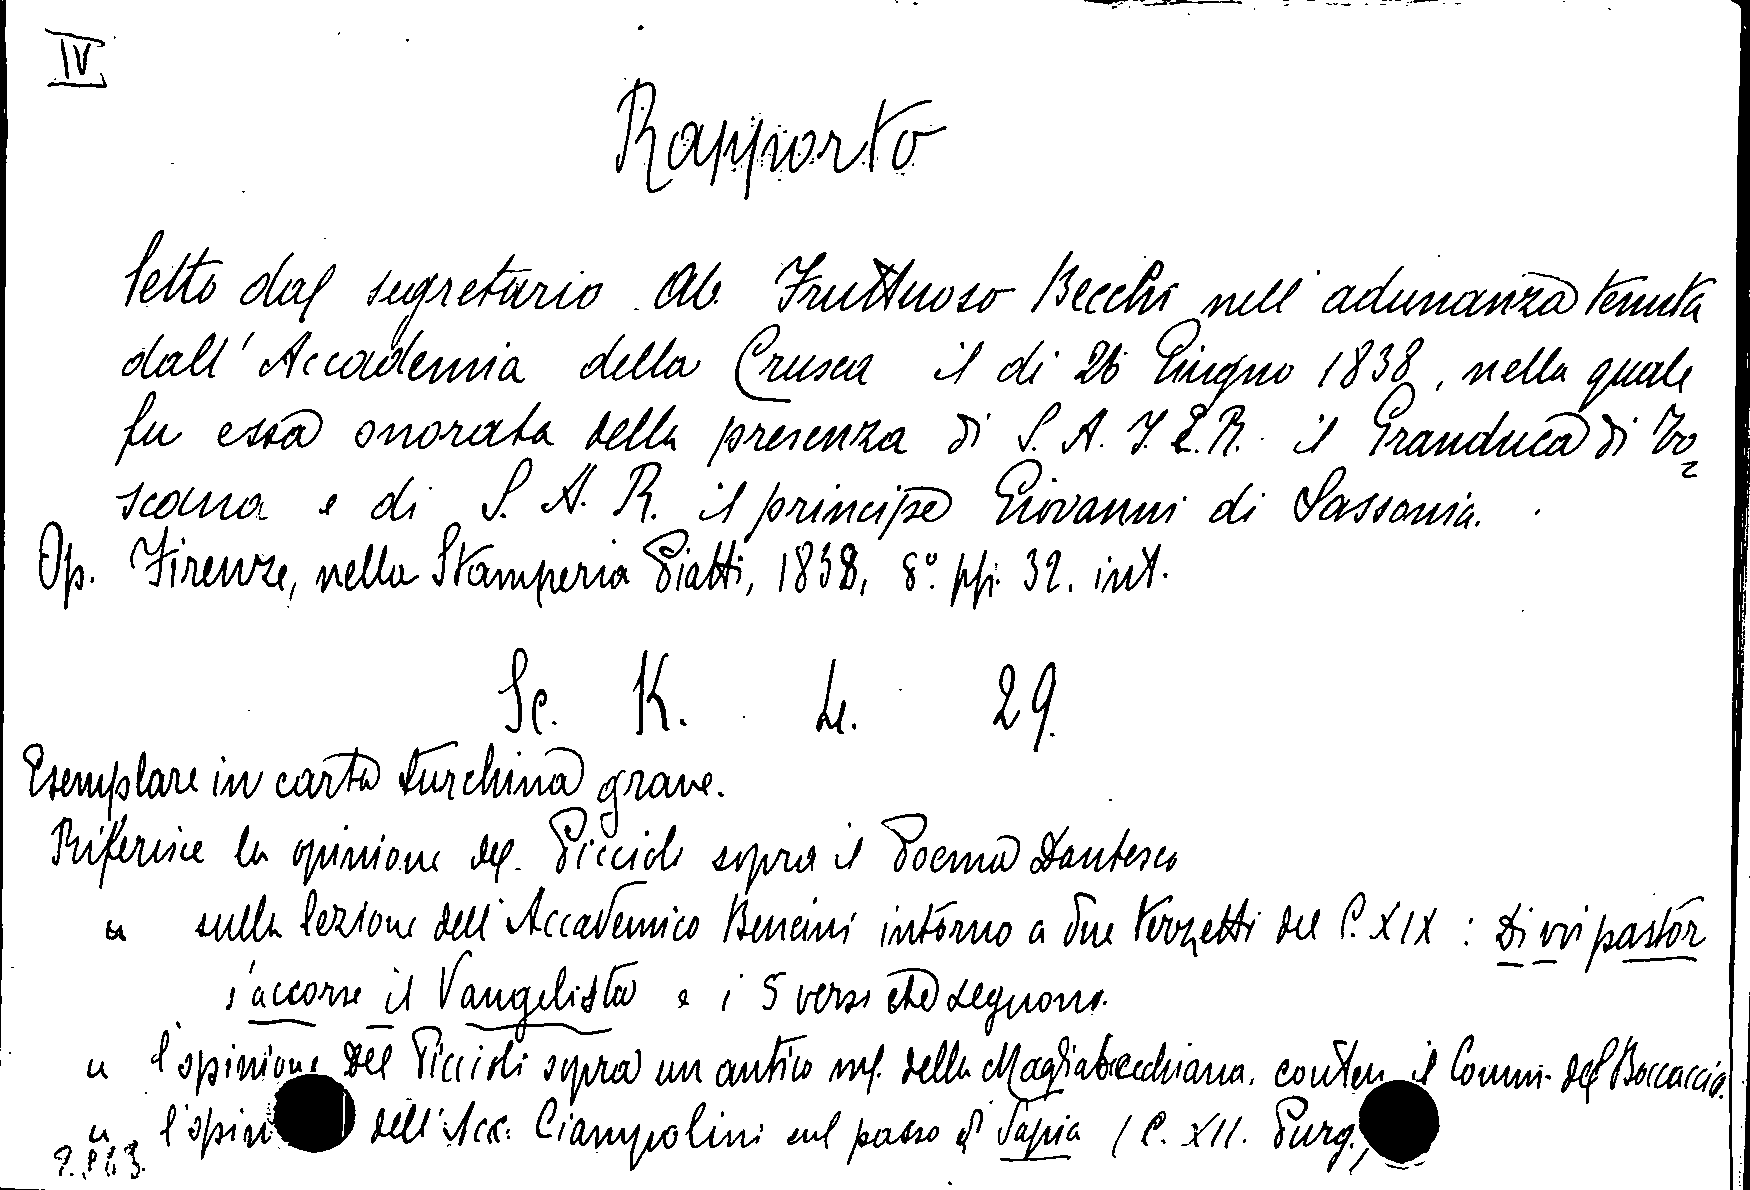 IV
Rapporto
letto dal segretario Ab. Fruttuoso Becchi nell' adunanza tenuta
dall' Accademia della Crusca il di 26 Giugno 1838, nella quale
fu essa onorata della presenza di S. A. I. E. R. il Granduca di To=
scana e di S. A. R. il principe Giovanni di Sassonia.
Op. Firenze, nella Stamperia Piatti, 1838, 8° pp. 32. int.
Sc. K. L. 29.
Esemplare in carta turchina grave.
Riferisce la opinione del Piccioli sopra il Poema Dantesco
" sulla lezione dell' Accademico Bencini intorno a due Verzetti del C. XIX : Di voi pastor
s'accorse il Vangelista e i 5 versi che seguono.
" l'opinione del Piccioli sopra un antico ms. della Magliabecchiana. conten. il Comm. del Boccaccio.
" l'opin dell' Acc. Ciampolini sul passo di Sapia ( C. XII. Purg.,
2.863.